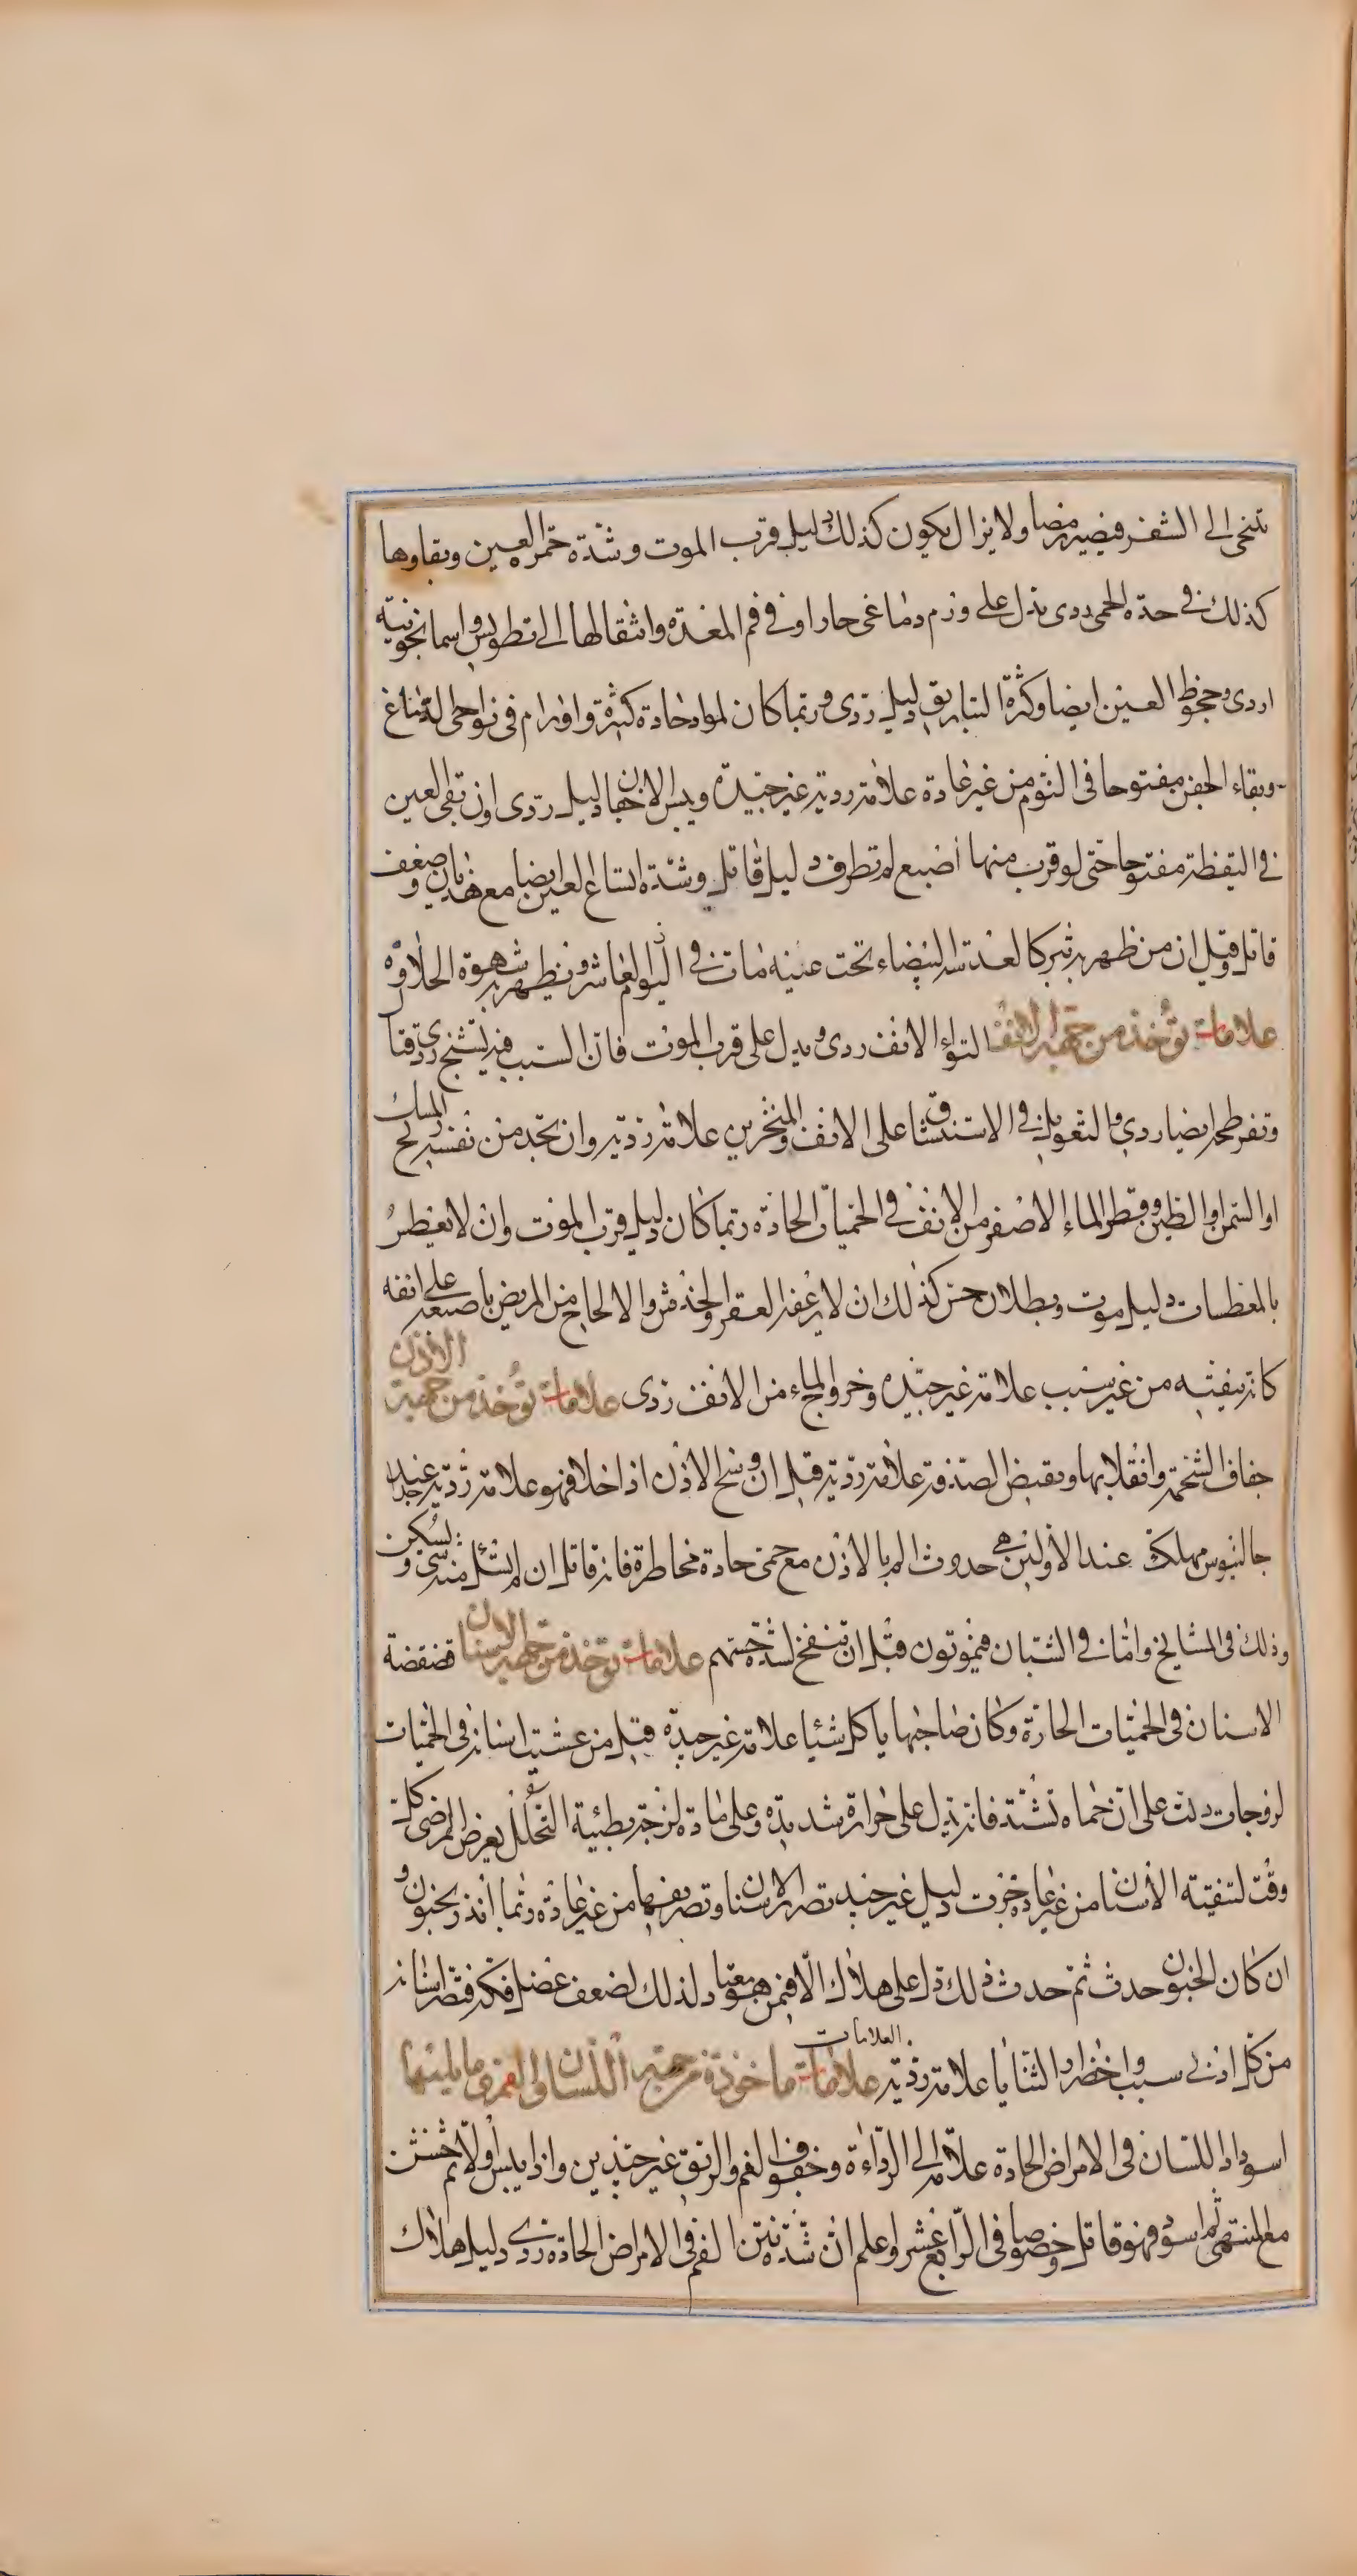 تنحى الى الشفر فيصير رمصا ولا يزال يكون كذلك دليل قرب الموت وشدة حمرة العين وبقاوها
كذلك فى حدة الحمى ردى يدل على ورم دماغى حار او فى فم المعدة وانتقالها الى تطويس واسمانجونية
اردى وجحوظ العين ايضا وكثرة التباريق دليل ردى وربما كان لمواد حادة كثيرة واورام فى نواحى الدماغ
وبقاء الجفن مفتوحا فى النوم من غير عادة علامة ردية غير جيدة ويبس الاجفان دليل ردى او ان تبقى العين
فى اليقظة مفتوحا حتى لو قرب منها اصبع لم تطرف دليل قاتل وشدة اتساع العين ايضا مع هذيان وضعف
قاتل وقيل ان من ظهر به بثر كالعدسة البيضاء تحت عينه مات فى اليوم العاشر ويظهر به شهوة الحلاوة
علامات تؤخذ من جهة الانف التواء الانف ردى ويدل على قرب الموت فان السبب فيه تشنج ردى قتال
وتفرطحه ايضا ردي والتعويل فى الاستنشاق على الانف والمنخرين علامة ردية وان تجد من نفسه ريح المسك
او السمن او الطين وقطر الماء الاصفر من الانف فى الحميات الحادة ربما كان دليل قرب الموت وان لا يعطس
بالمعطسات دليل موت وبطلان حس كذلك ان لا يرعفه العقر والخدش والالحاح من المريض باصبعه على انفه
كانه ينقيه من غير سبب علامة غير جيدة وخروج الماء من الانف ردى علامات تؤخذ من جهة الاذن
جفاف الشحمة وانقلابها وتقبض الصدفة علامة ردية قيل ان وسخ الاذن اذا حلا فهو علامة ردية عند
جالينوس مهلك جدا عند الاولين هى حدوث الم بالاذن مع حمى حادة مخاطرة فانه قاتل ان لم يسل منه شى ويسكن
وذلك فى المشايخ واما فى الشبان فيموتون قبل ان تنفتح لشدة حسهم علامات تؤخذ من جهة الاسنان قضقضة
الاسنان فى الحميات الحادة وكان صاحبها ياكل شئيا علامة غير جيدة قيل من غشيت اسنانه فى الحميات
لزوجات دلت على ان حماه تشتد فانه يدل على حرارة شديدة وعلى مادة لزجة بطيئة التحلل تعرض المرضى كل
وقت لتنقية الاسنان من غير عادة جرت دليل غير جيد تصرير الاسنان وتصريفها من غير عادة ربما انذر بجنون و
ان كان الجنون حدث ثم حدث ذلك دل على هلاك الا فيمن هو معتاد لذلك لضعف عضل فكه فتصر اسنانه
من كل ادنى سبب واخضرار الثنايا علامة ردية علامات ماخوذة من جهة اللسان والفم وما يليها
العلامات
اسوداد اللسان فى الامراض الحادة علامة الى الرداءة وجفوف الفم والريق غير جيدين واذا يبس اولا ثم خشن
مع المنتهى ثم اسود فهو قاتل وخصوصا فى الرابع عشر واعلم ان شدة نتن الفم فى الامراض الحادة ردى دليل هلاك